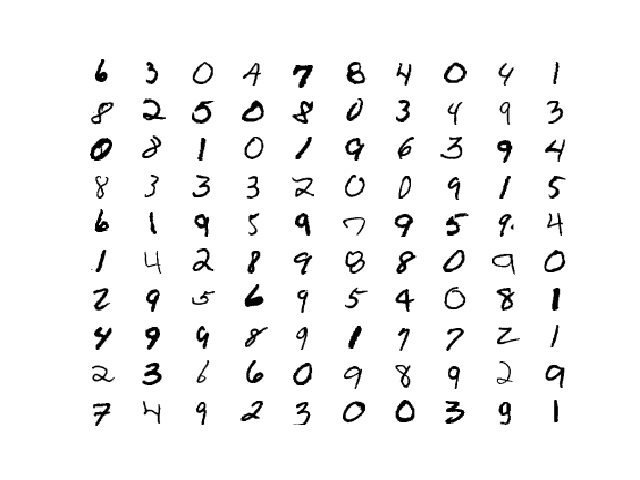 6 3 0 4 7 8 4 0 4 1
8 2 5 0 8 0 3 4 9 3
0 8 1 0 1 9 6 3 9 4
8 3 3 3 2 0 0 9 1 5
6 1 9 5 9 7 9 5 9 4
1 4 2 8 9 8 8 0 9 0
2 9 5 6 9 5 4 0 8 1
4 9 9 8 9 1 7 7 2 1
2 3 6 6 0 9 8 9 2 9
7 4 9 2 3 0 0 3 9 1